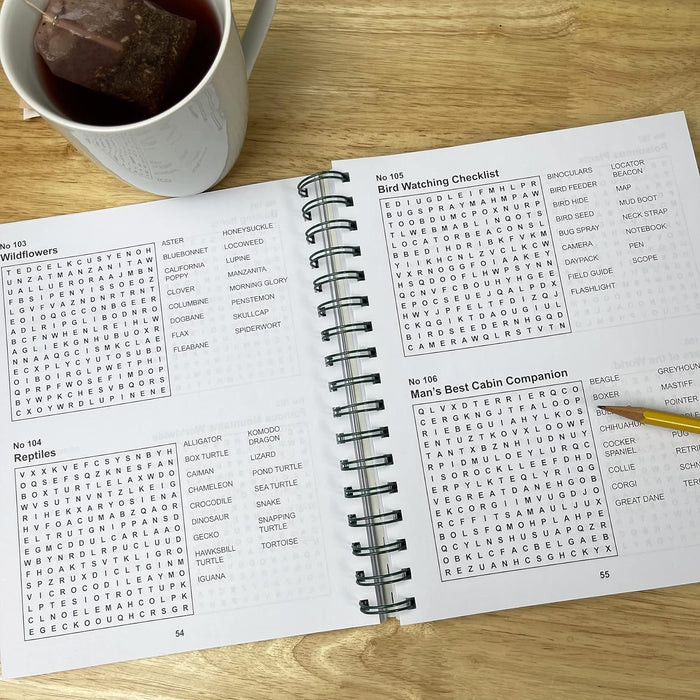 No 103
Wildflowers
T E D C E L K C U S Y E N O H
U N Z A T M A N Z A N I T A W
F B S I P E N S I S S O E O Z
B C F N W H E N L R E I H L W
ASTER
BLUEBONNET
CALIFORNIA
POPPY
CLOVER
COLUMBINE
DOGBANE
FLAX
FLEABANE
HONEYSUCKLE
LOCOWEED
LUPINE
MANZANITA
MORNING GLORY
PENSTEMON
SKULLCAP
SPIDERWORT
No 104
Reptiles
V X X K V E F C S Y S N B Y H
O Q S E F S Q Z K N E S F A N
B O X T U R T L E L A X W D O
W V S U T N V N T Z L K E I G
R I H E K X A R Y O S I E N A
H V F O A C U M A B Z Q A O R
E L T R U T G N I P P A N S D
E G M C D D U L C A R L A A D
W B Y N R D L R P U C L U U D
F H O A K T S V T K L I G R O
S P Z R U X D I C L T G I N M
V I C R O C O D I L E A Y M O
L P T E S I O T R O T T U P K
C L N O E L E M A H C O L P K
E G E C K O O U Q H C R S G R
ALLIGATOR
BOX TURTLE
CAIMAN
CHAMELEON
CROCODILE
DINOSAUR
GECKO
HAWKSBILL
TURTLE
IGUANA
KOMODO
DRAGON
LIZARD
POND TURTLE
SEA TURTLE
SNAKE
SNAPPING
TURTLE
TORTOISE
54
No 105
Bird Watching Checklist
E D I U G D L E I F M H L P R
B U G S P R A Y M A H M P A W
T O O B D U M C P O X N U R P
T L W E B M A B L I N Q O T S
L O C A T O R B E A C O N S L
B B E D I H D R I B K F V K M
Y I I K H C N L Z V C L K C W
V X R N O G G F O I A A K E Y
H S Q D O O F L H W P S Y N N
Q C N V F C B O U H Y H G E E
E P O C S E U E J Q A L P D X
H W Y J P F E L T F D I Z Q J
C K Q G I K T D A O U G I U J
B I R D S E E D E R N H G Q D
C A M E R A W Q L R S T V T N
BINOCULARS
BIRD FEEDER
BIRD HIDE
BIRD SEED
BUG SPRAY
CAMERA
DAYPACK
FIELD GUIDE
FLASHLIGHT
LOCATOR
BEACON
MAP
MUD BOOT
NECK STRAP
NOTEBOOK
PEN
SCOPE
No 106
Man's Best Cabin Companion
Q L V X D T E R R I E R Q C O
C E R G K N G J T F A L O O P
R I E B E G U I A H Y L K O S
E N T U Z T K O V X L O O W F
T A N T X B Z N H I U D N U Y
R P I D M U L O E Y L U R Q C
I S O R O C K L L E E F D H D
E R P Y L K T E Q L Y R I Q G
V E G R E A T D A N E H G O B
E K C O R G I I M V U G D J O
R C F F I T S A M A U L J J X
B O L S F Q M O H P L A H P E
Q C Y L N S H U S U A P Q Z R
O B K L C F A C B E L G A E B
R E Z U A N H C S G H C K Y X
BEAGLE
BOXER
CHIHUAHUA
COCKER
SPANIEL
COLLIE
CORGI
GREAT DANE
GREYHOUN
MASTIFF
POINTER
PUG
RETRI
SCHN
TERR
55